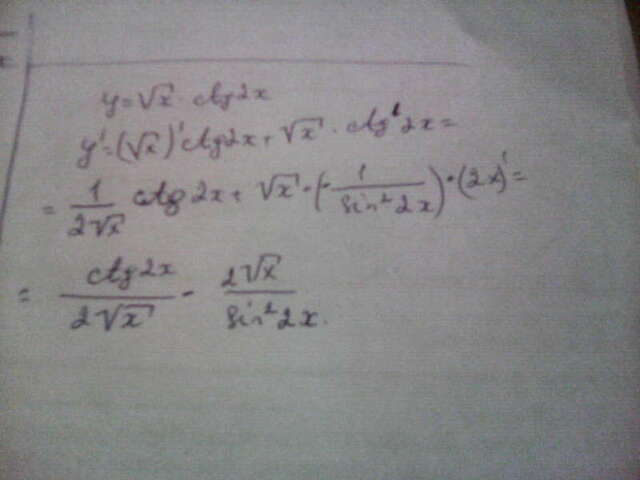 y=√x · ctg2x
y'=(√x)'ctg2x+√x · ctg'2x=
= 1/(2√x) ctg2x+ √x · (-1/(sin²2x)) · (2x)'=
= (ctg2x)/(2√x) - (2√x)/(sin²2x).